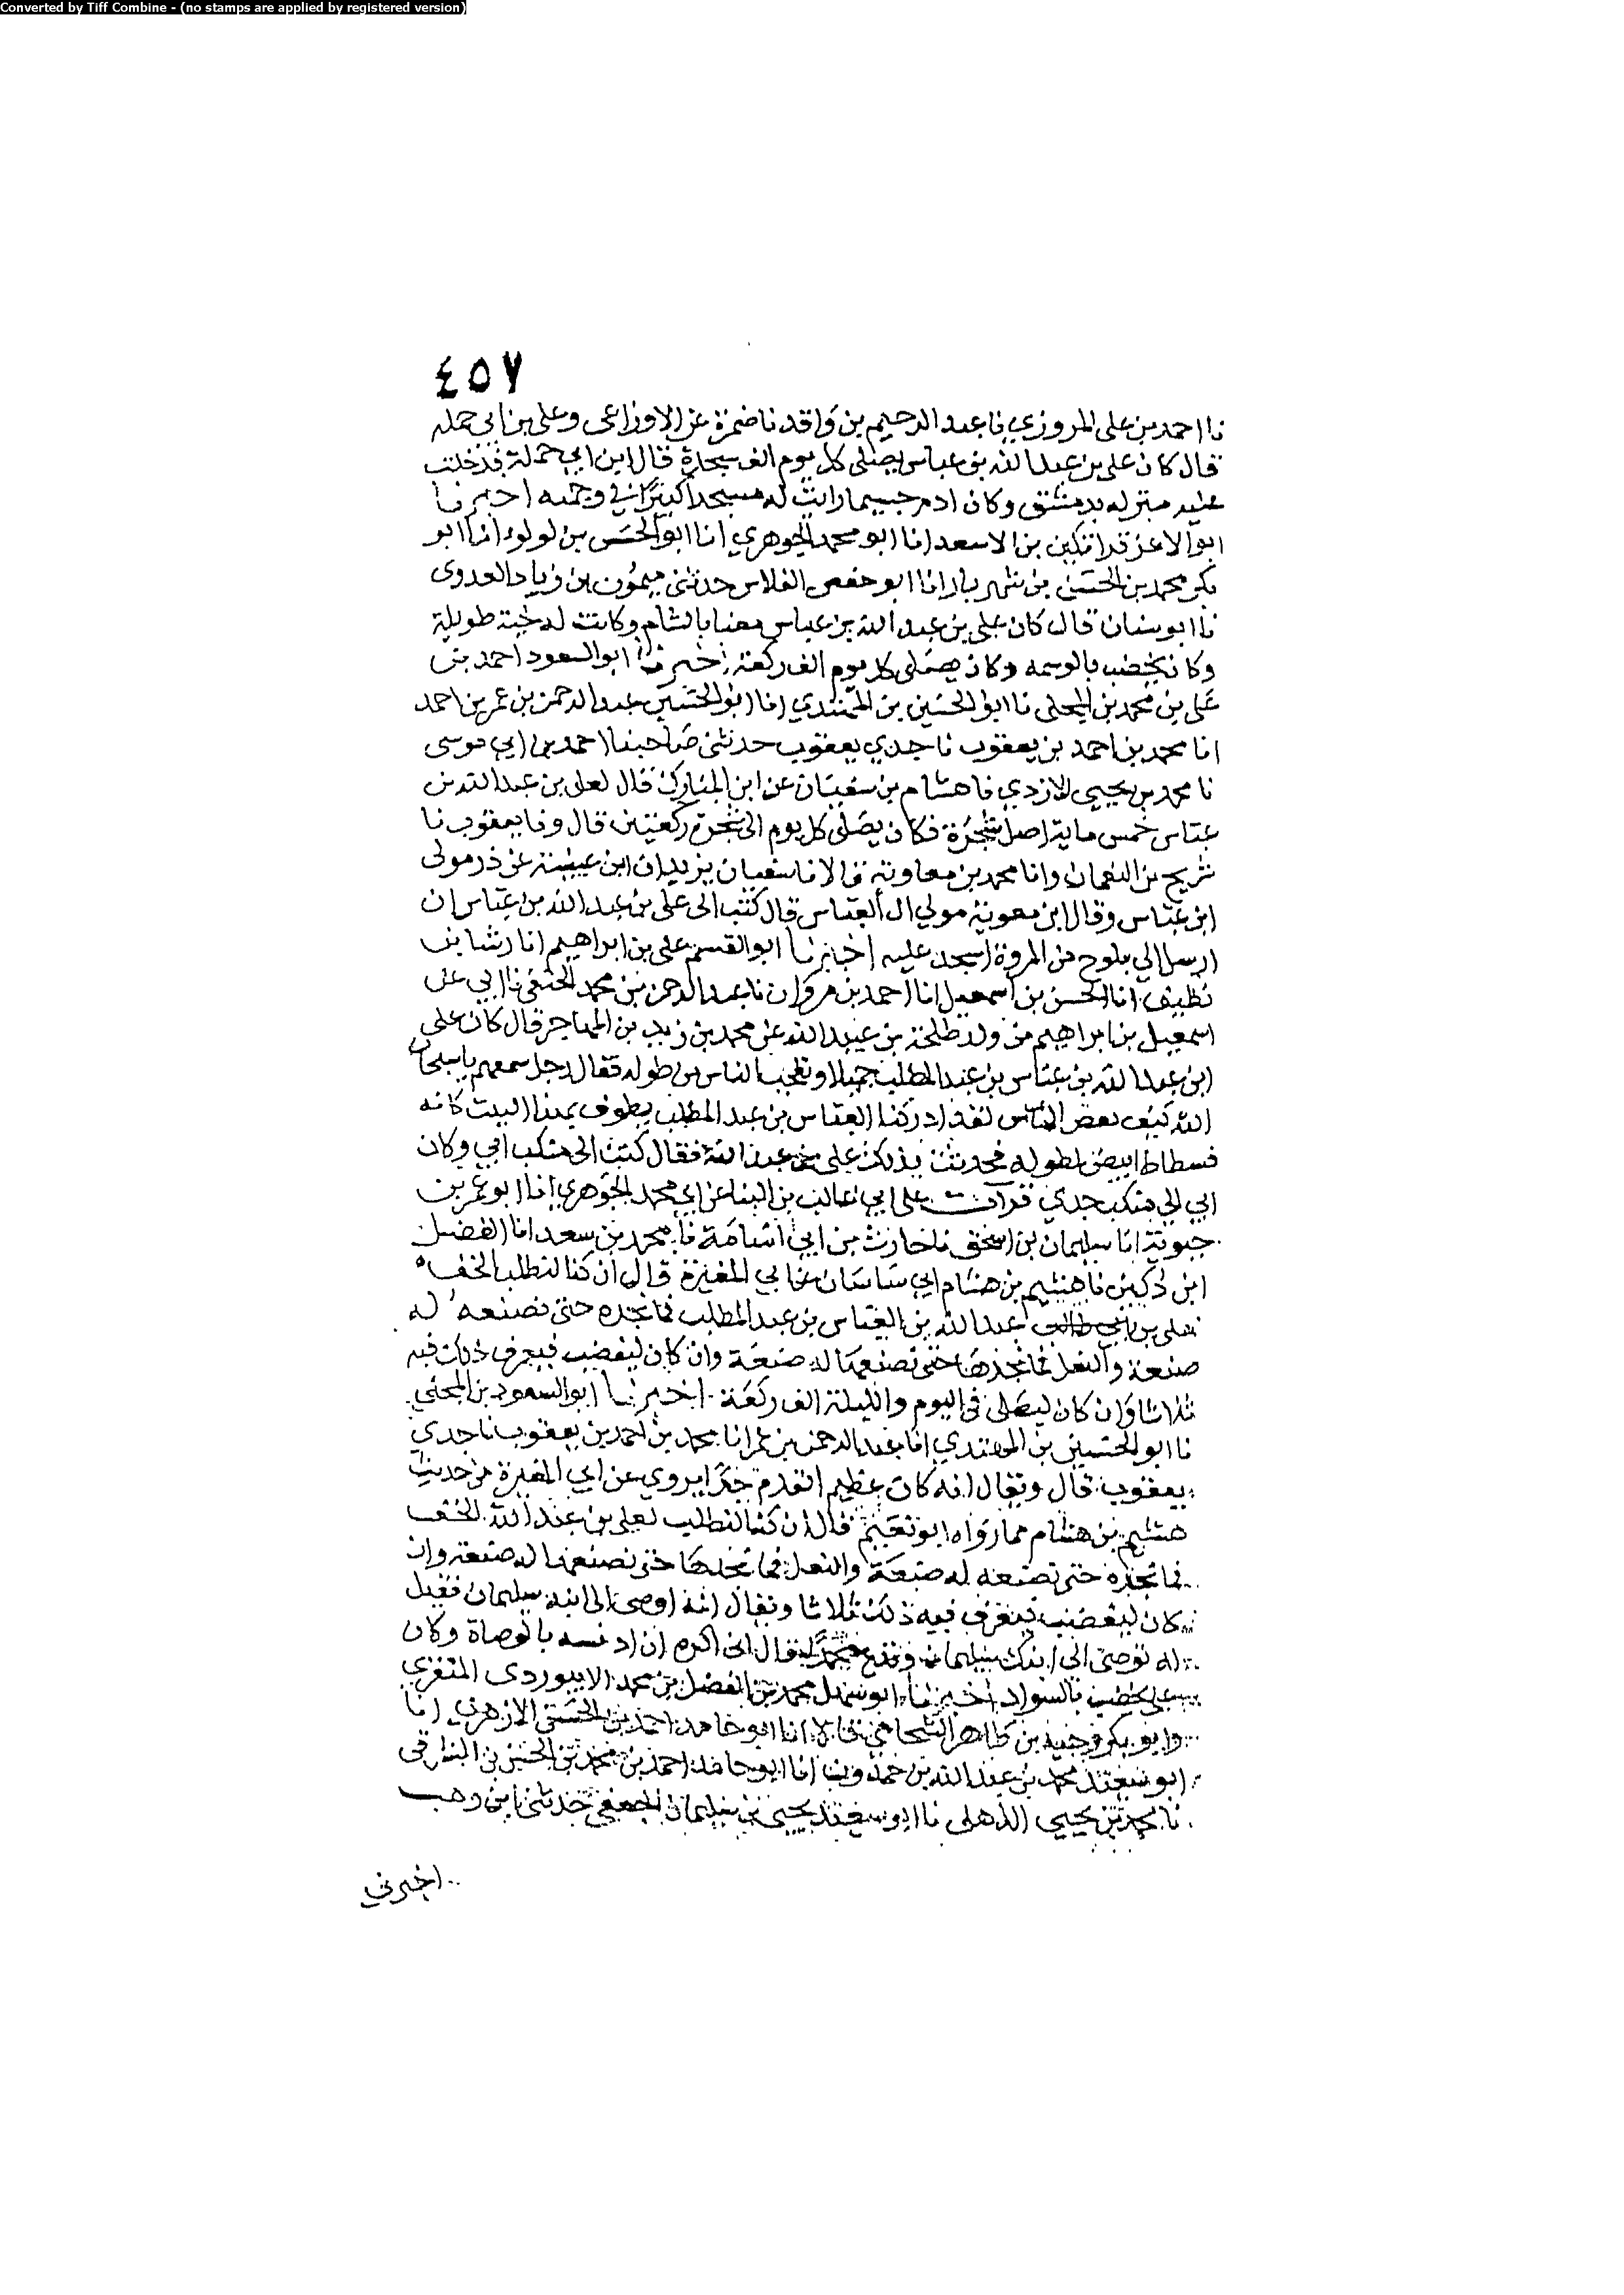 Converted by Tiff Combine - (no stamps are applied by registered version)
٤٥٧
نا احمد بن على المروزي نا عبد الرحيم بن واقد نا ضمرة عن الاوزاعى وعلى بن ابى حمله
قال كان على بن عبد الله بن عباس يصلى كل يوم الف سجدة قال ابن ابي حملة فدخلت
عليه منزله بدمشق وكان ادم جسيما رايت له مسجدا كبيرا في وجهه اخبرنا
ابو الاعز قراتكين بن الاسعد انا ابو محمد الجوهري انا ابو الحسن بن لولو انا ابو
بكر محمد بن الحسين بن شهريار انا ابو حفص الفلاس حدثنى ميمون بن زياد العدوى
نا ابو سنان قال كان على بن عبد الله بن عباس معنا بالشام وكانت له لحية طويلة
وكان يخضب بالوسمه وكان يصلى كل يوم الف ركعة اخبرنا ابو السعود احمد بن
على بن محمد بن المجلى نا ابو الحسين بن المهتدي انا ابو الحسين عبد الرحمن بن عمر بن احمد
انا محمد بن احمد بن يعقوب نا جدي يعقوب حدثنى صاحبنا احمد بن ابي موسى
نا محمد بن يحيى الازدي نا هشام بن سفيان عن ابن المبارك قال لعلى بن عبد الله بن
عباس خمس ماية اصل شجرة فكان يصلى كل يوم الى شجرة ركعتين قال ونا يعقوب نا
شريح بن النعمان وانا محمد بن معاوية قالا نا سفيان يزيدان ابن عيينة عن ذر مولى
ابن عباس وقال ابن معوية مولي ال العباس قال كتب الى على بن عبد الله بن عباس ان
ارسل الي بلوح من المروة اسجد عليه اخبرنا ابو القسم على بن ابراهيم انا رشا بن
نظيف انا الحسن بن اسمعيل انا احمد بن مروان نا عبد الرحمن بن محمد الحنفى نا ابي عن
اسمعيل بن ابراهيم من ولد طلحة بن عبيد الله عن محمد بن زيد بن المهاجر قال كان على
ابن عبد الله بن عباس بن عبد المطلب جميلا وتعجب الناس من طوله فقال رجل سمعهم يا سبحان
الله كيف نقص الناس لقد ادركنا العباس بن عبد المطلب يطوف بهذا البيت كانه
فسطاط ابيض لطوله فحديث بذلك على بن عبد الله فقال كنت الى منكب ابي وكان
ابي الى منكب جدي قرات على ابي غالب بن البنا عن ابي محمد الجوهري انا ابو عمر بن
حيوية انا سليمان بن اسحق نا حارث بن ابي اسامة نا محمد بن سعد انا الفضل
ابن دكين نا هشيم بن هشام ابي ساسان عن ابي المغيرة قال ان كنا لنطلب الخف
لعلى بن عبد الله بن العباس بن عبد المطلب فما نجده حتى نصنعه له
صنعة والنعل فما نجدها حتى نصنعها له صنعة وان كان ليغضب فيعرف ذلك فيه
ثلاثا وان كان ليصلى فى اليوم والليلة الف ركعة اخبرنا ابو السعود بن المجلي
نا ابو الحسين بن المهتدي انا عبد الرحمن بن عمر انا محمد بن احمد بن يعقوب نا جدي
يعقوب قال ويقال انه كان عظيم القدم جدا يروي عن ابي المغيرة من حديث
هشيم بن هشام مما رواه ابو نعيم قال ان كنا لنطلب لعلى بن عبد الله الخف
فما نجده حتى نصنعه له صنعة والنعل فما نجدها حتى نصنعها له صنعة وان
كان ليغضب فيعرف فيه ذلك ثلاثا ويقال انه اوصى الى ابنه سليمان فقيل
له توصى الى ابنك سليمان وتدع محمدا فقال انى اكره ان ادنسه بالوصاة وكان
على يخضب بالسواد اخبرنا ابو سهل محمد بن الفضل بن محمد الابيوردى
وابو بكر وجيه بن طاهر الشحامي قالا انا ابو حامد احمد بن الحسن الازهري انا
ابو سعيد محمد بن عبد الله بن حمدون انا ابو حامد احمد بن محمد بن الحسن بن الشرقى
نا محمد بن يحيى الذهلى نا ابو سعيد يحيى بن سليمان الجعفي حدثنى ابن وهب
اخبرني